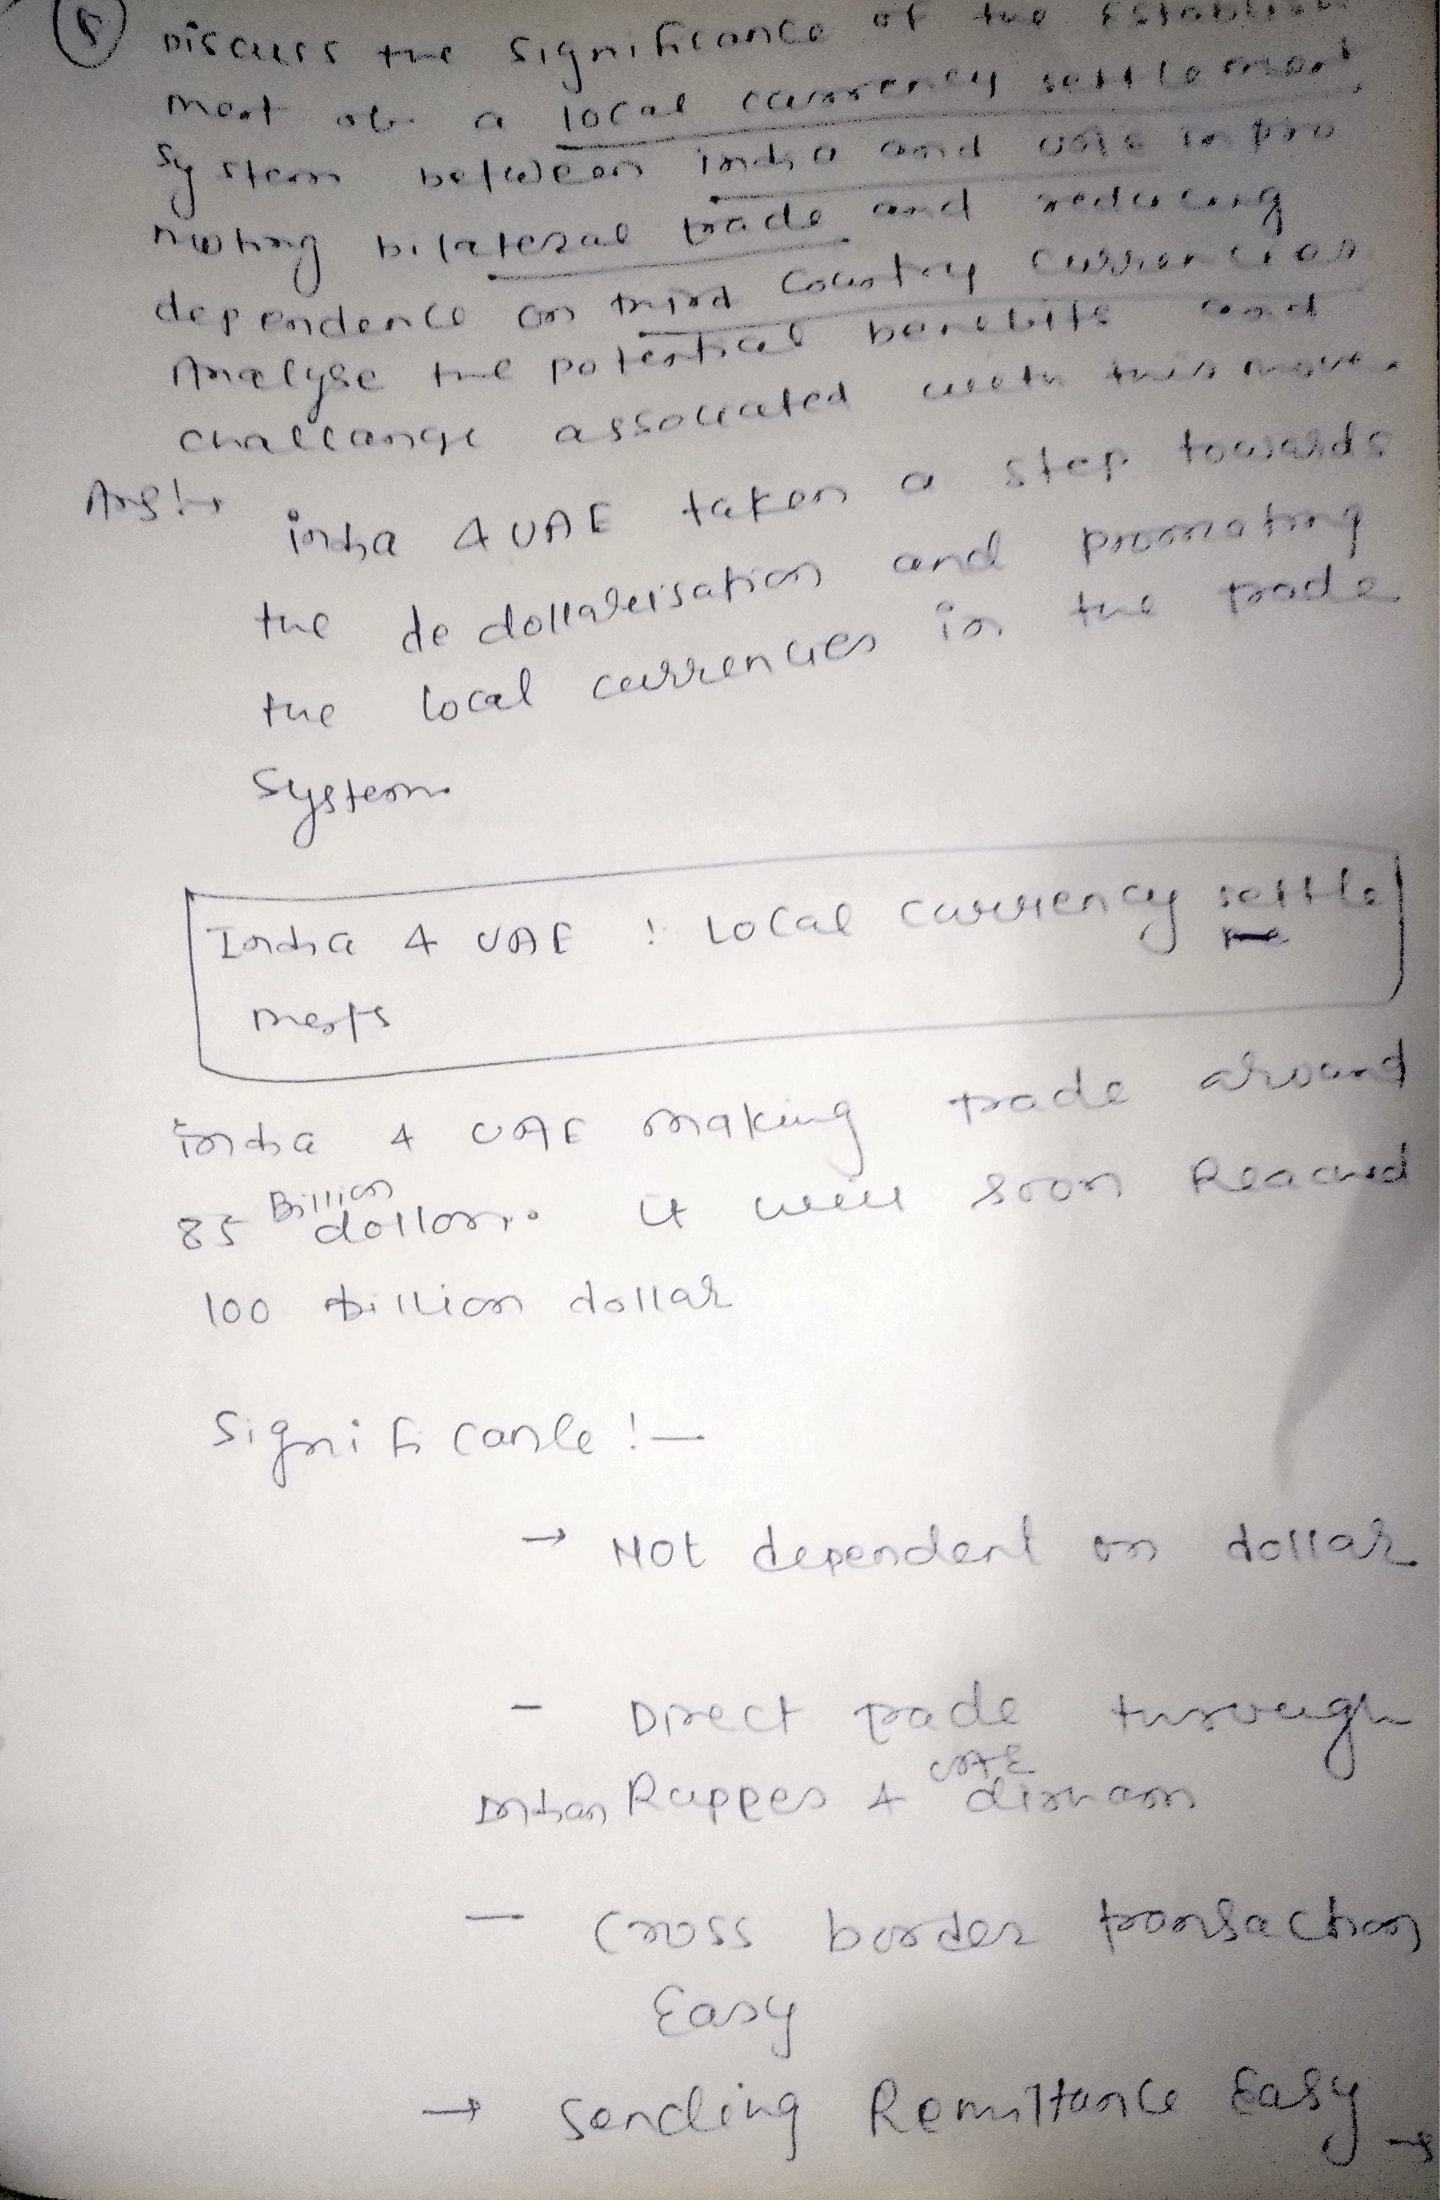 (5) Discuss the significance of the Establish
ment of a local currency settlement
system between india and UAE in pro
moting bilateral trade and reducing
dependence on third country currencies
Analyse the potential benefits and
challange associated with this move.
Ans:-
india & UAE taken a step towards
the de dollarisation and promoting
the local currencies in the trade
System.
India & UAE : Local currency settle
ments
india & UAE making trade around
85 Billion dollors. it will soon Reached
100 billion dollar
Significance :-
→ Not dependent on dollar
- Direct trade through
Indian Ruppes & UAE dirham
- Cross border transaction
Easy
→ Sending Remittance Easy →